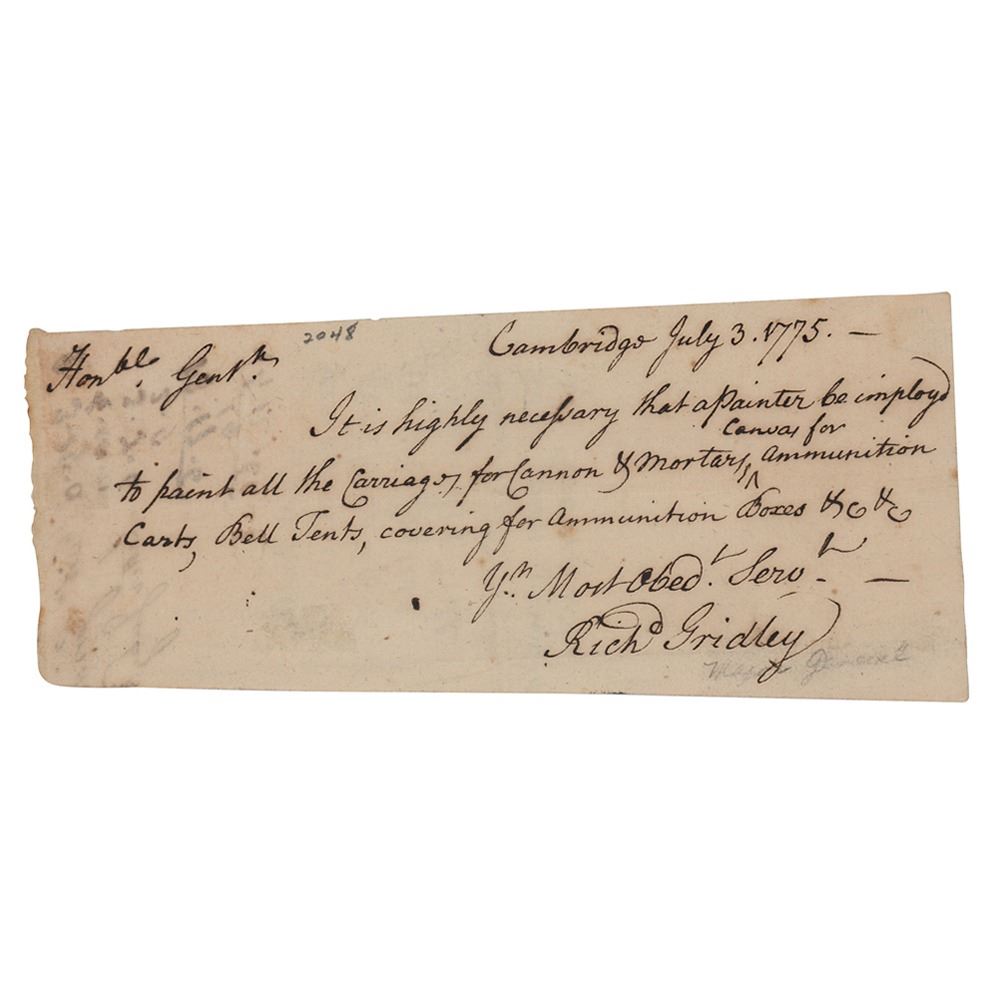 2048
Cambridge July 3. 1775. —
Honble. Gentn.
It is highly necessary that a Painter be imployd
to paint all the Carriages for Cannon & Mortars, ^ Canvas for Ammunition
Carts, Bell Tents, covering for Ammunition Boxes &c &c
Yr. Most Obedt. Servt. —
Richd Gridley
Major General